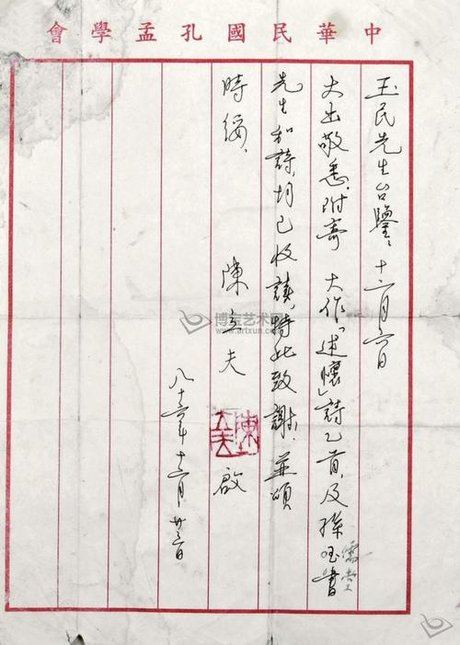 中華民國孔孟學會
玉民先生台鑒、十二月六日
大函敬悉.附寄 大作「述懷」詩乙首,及孫
先生和詩,均已收讀,特此致謝.並頌
時綏、
陳立夫 啟
陳立夫
八十六年十二月廿三日
博宝艺术网
www.artxun.com